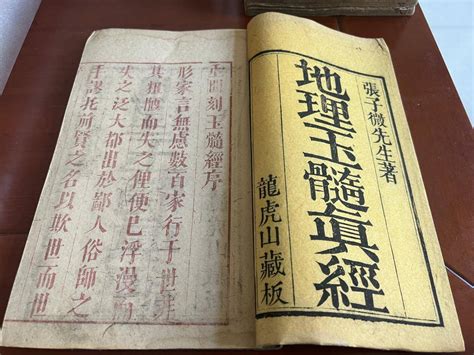 張子微先生著
地理玉髓眞經
龍虎山藏板
重刻玉髓經序
形家言無慮數百家行于世
其而失之俚便浮漫
失之泛大都出於鄙人俗師之
手謬托前賢之名以欺世而世